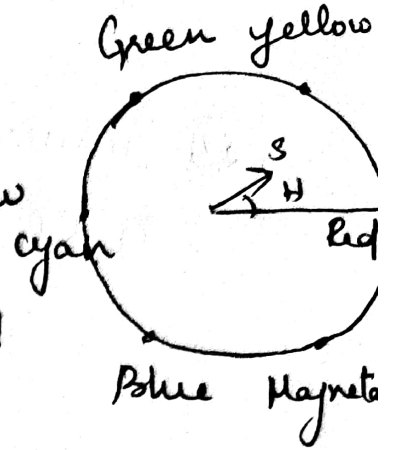 Green yellow
S
H
Red
cyan
Blue Magneta